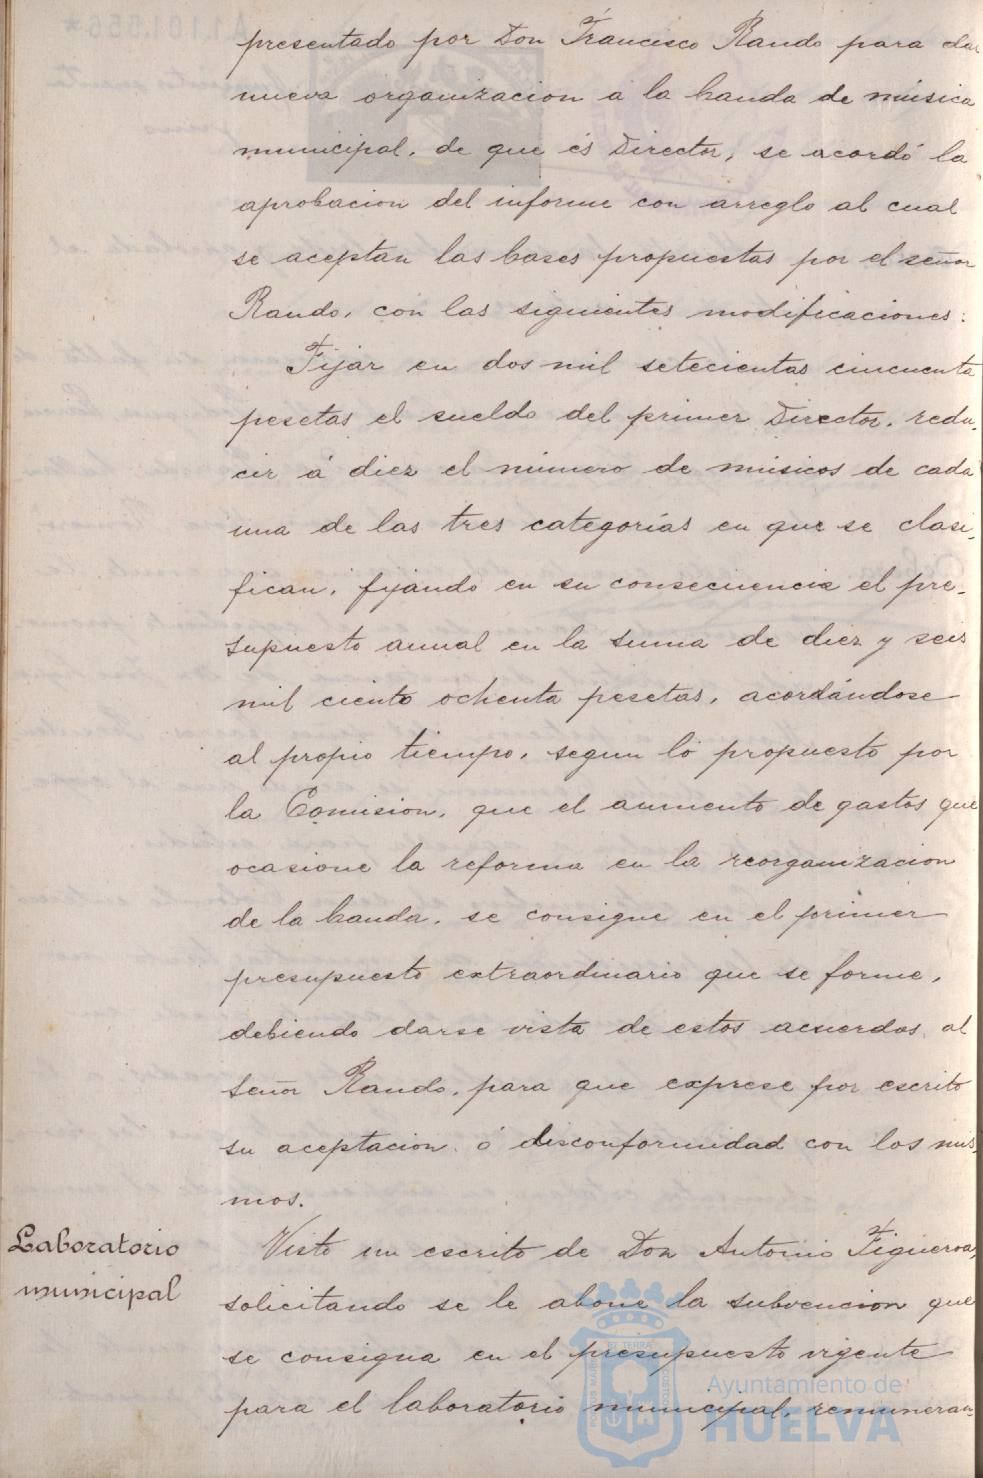 presentado por Don Francisco Rando para dar
nueva organizacion a la banda de música
municipal, de que és Director, se acordó la
aprobacion del informe con arreglo al cual
se aceptan las bases propuestas por el señor
Rando, con las siguientes modificaciones:
Fijar en dos mil setecientas cincuenta
pesetas el sueldo del primer Director, redu-
cir á diez el número de músicos de cada
una de las tres categorías en que se clasi-
fican, fijando en su consecuencia el pre-
supuesto anual en la suma de diez y seis
mil ciento ochenta pesetas, acordándose
al propio tiempo, segun lo propuesto por
la Comision, que el aumento de gastos que
ocasione la reforma en la reorganizacion
de la banda, se consigne en el primer
presupuesto extraordinario que se forme,
debiendo darse vista de estos acuerdos al
señor Rando, para que exprese por escrito
su aceptacion ó disconformidad con los mis-
mos.
Laboratorio
municipal
Visto un escrito de Don Antonio Figueroa,
solicitando se le abone la subvencion que
se consigna en el presupuesto vigente
para el laboratorio municipal, remuneran-
Ayuntamiento de
HUELVA